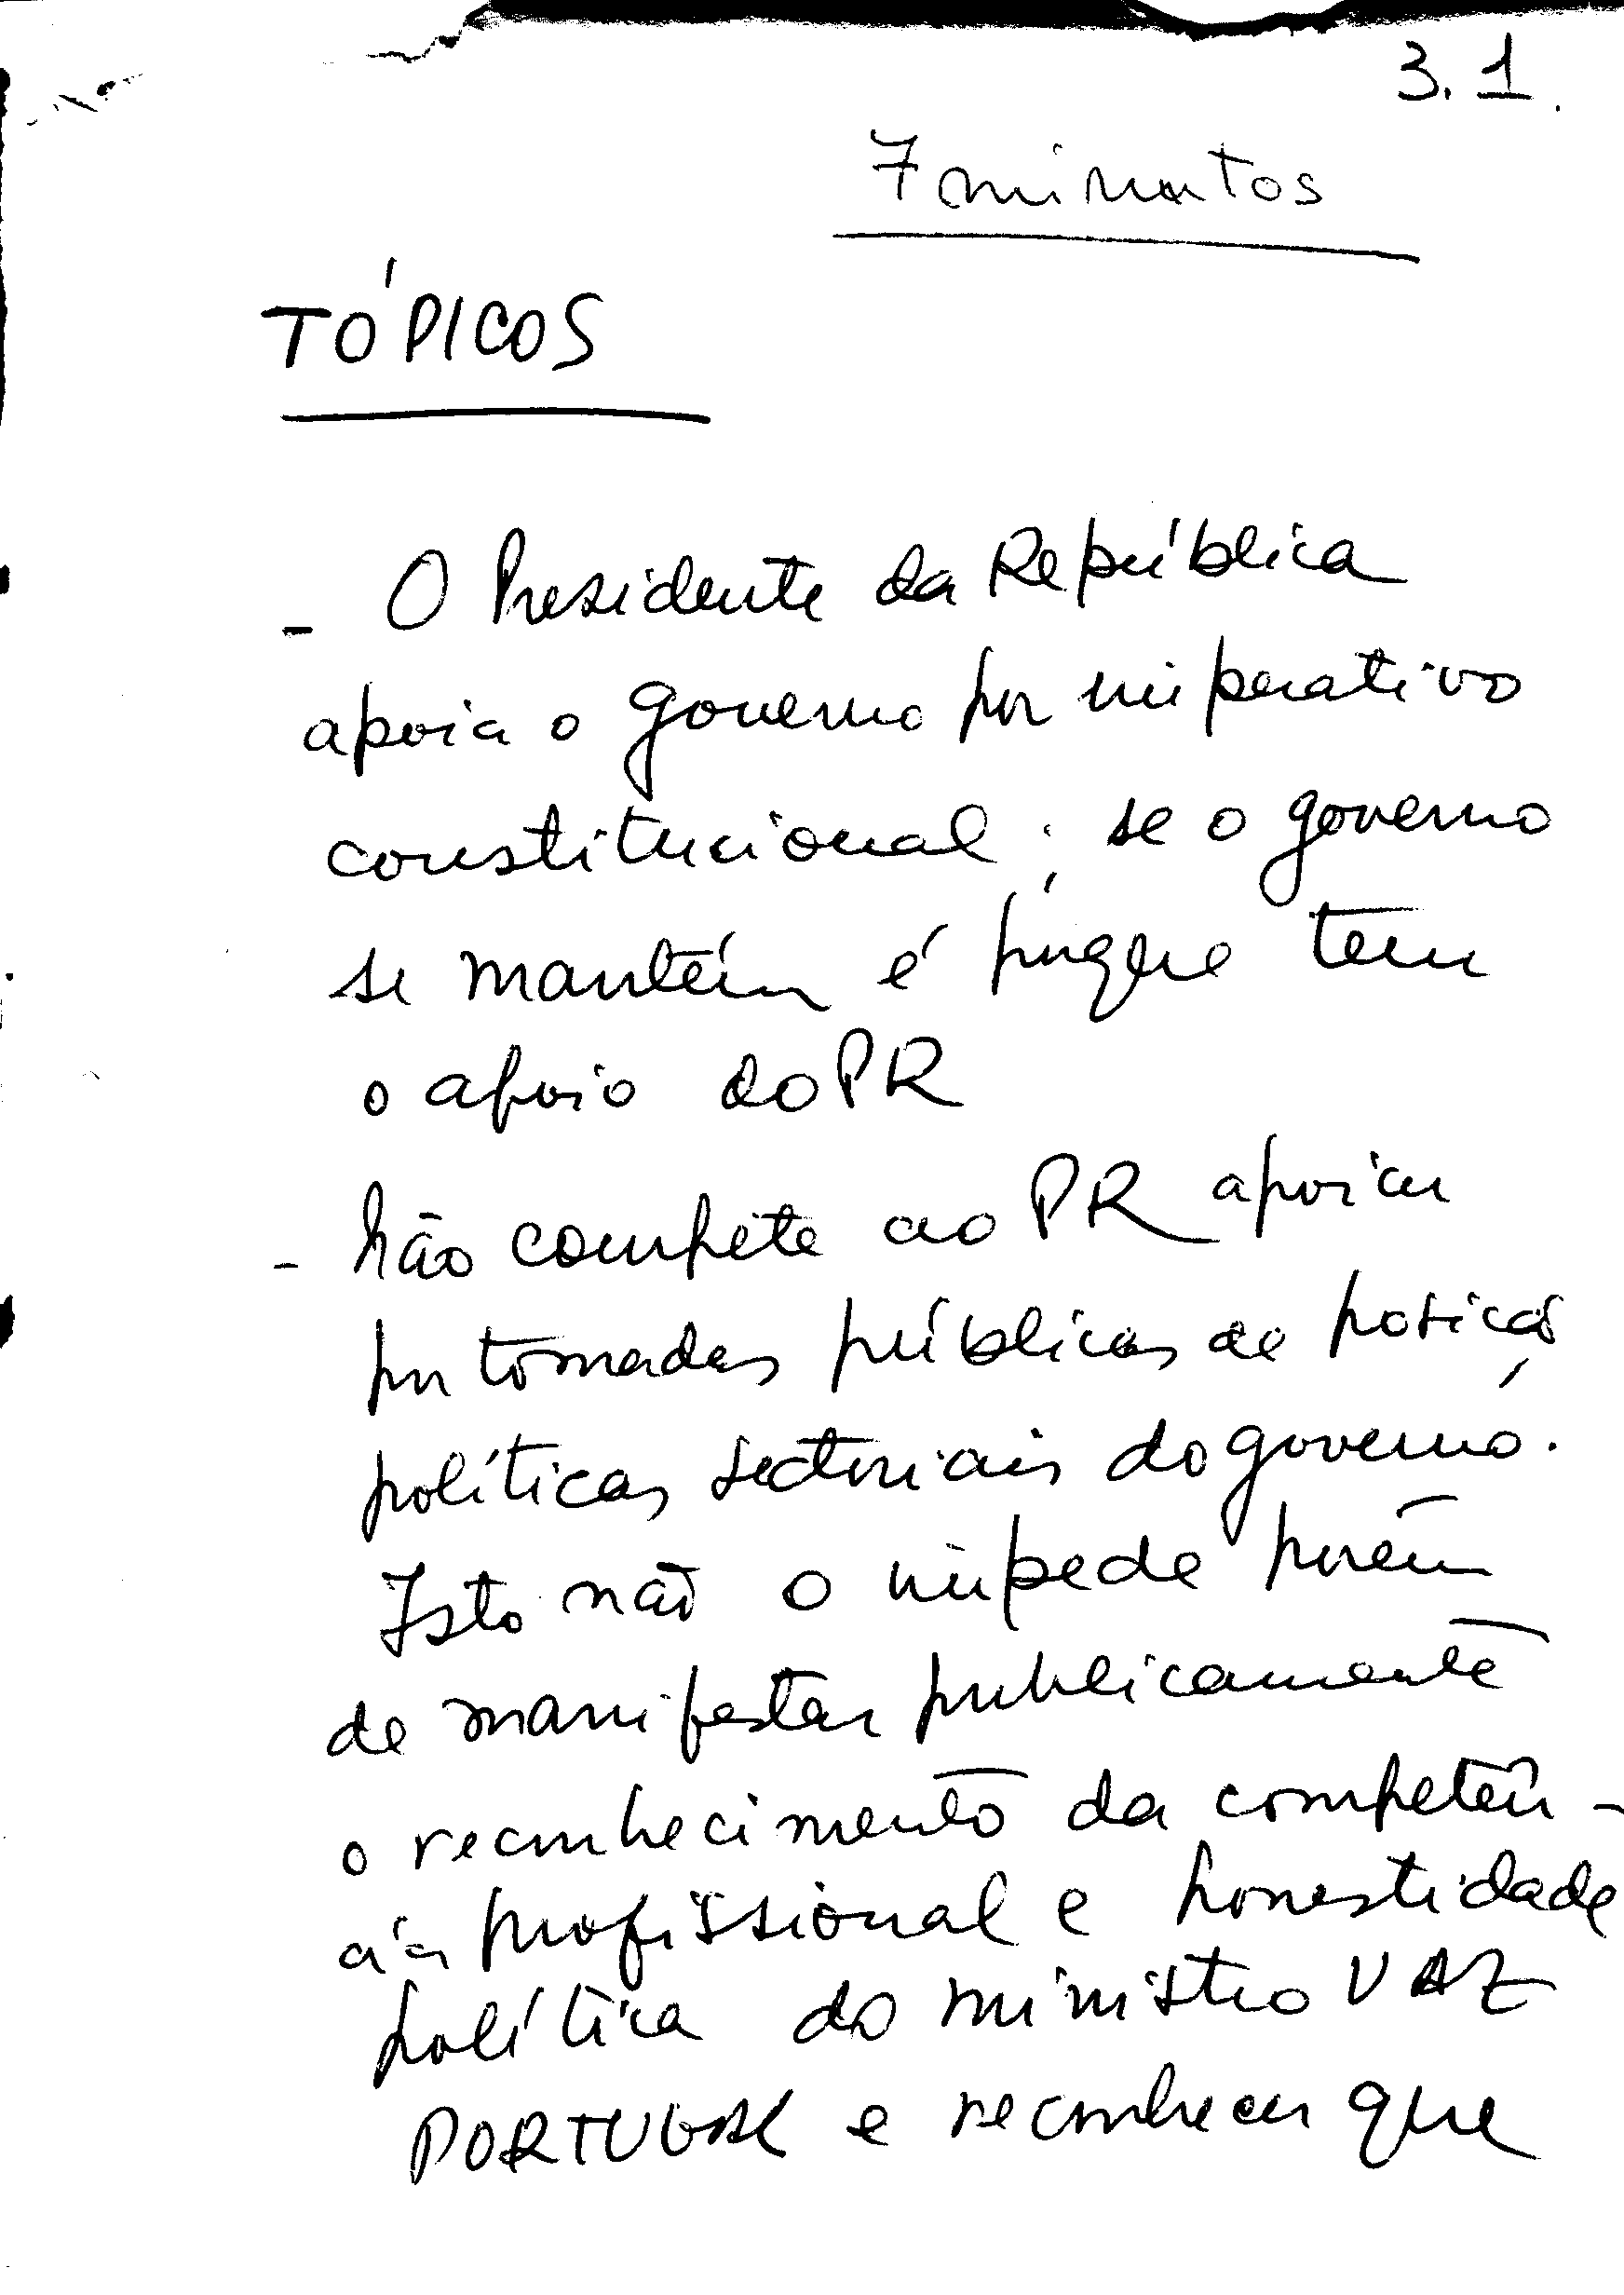 3.1.
7 minutos
TÓPICOS
- O Presidente da República
apoia o governo por imperativo
constitucional; se o governo
se mantém é porque tem
o apoio do PR
- Não compete ao PR apoiar
por tomadas públicas de posição
políticas sectoriais do governo.
Isto não o impede porém
de manifestar publicamente
o reconhecimento da competên-
cia profissional e honestidade
política do ministro VAZ
PORTUGAL e reconhecer que